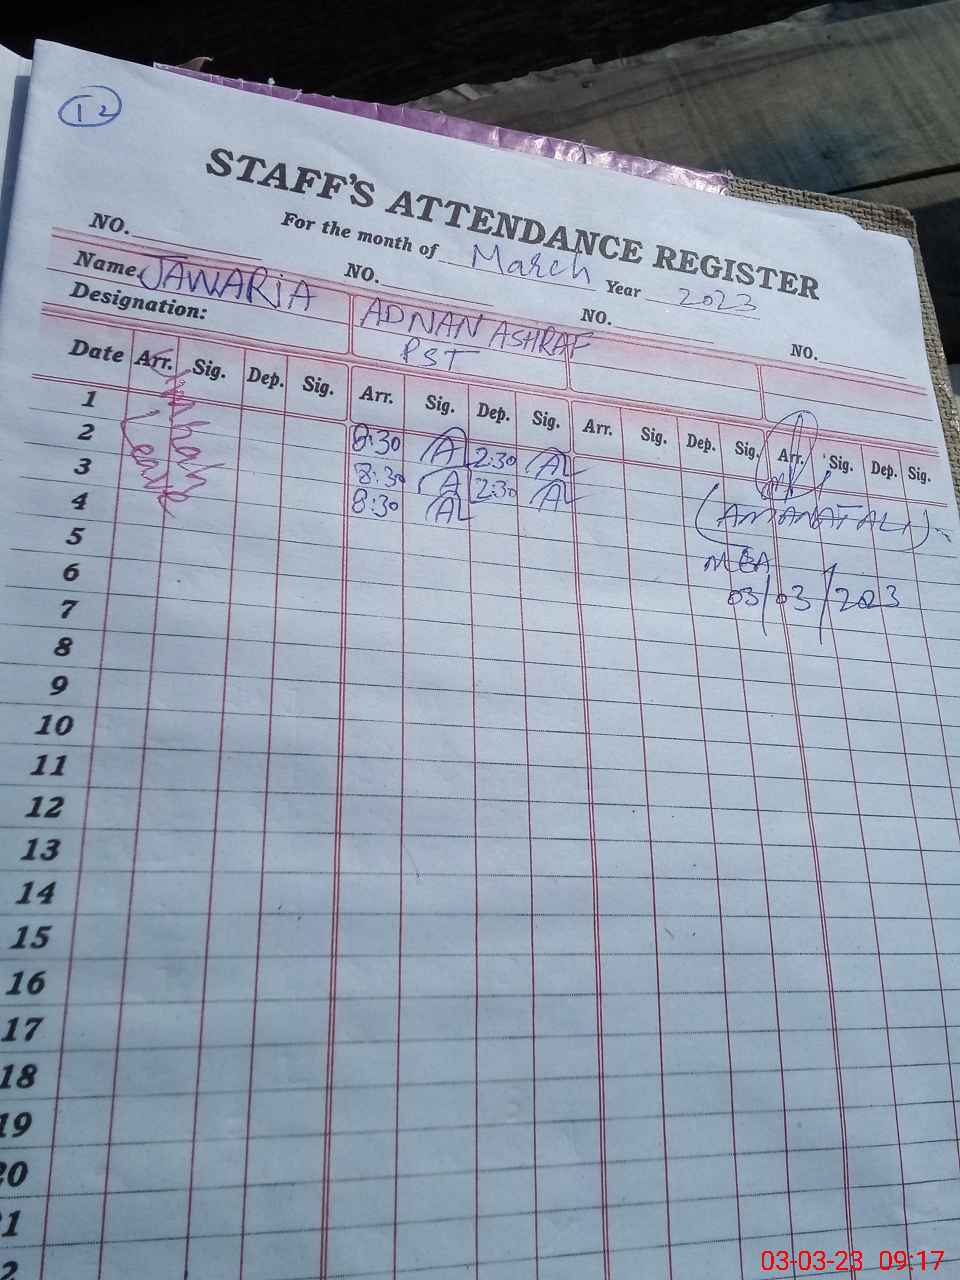 12
STAFF'S ATTENDANCE REGISTER
For the month of March Year 2023
NO. NO. NO. NO.
Name JAWARIA ADNAN ASHRAF
Designation: PST
Date Arr. Sig. Dep. Sig. Arr. Sig. Dep. Sig. Arr. Sig. Dep. Sig. Arr. Sig. Dep. Sig.
1 8:30 2:30
2 8:30 2:30
3 8:30
4
(AMANAT ALI)
5
MEA
6
03/03/2023
7
8
9
10
11
12
13
14
15
16
17
18
19
20
21
2
03-03-23 09:17